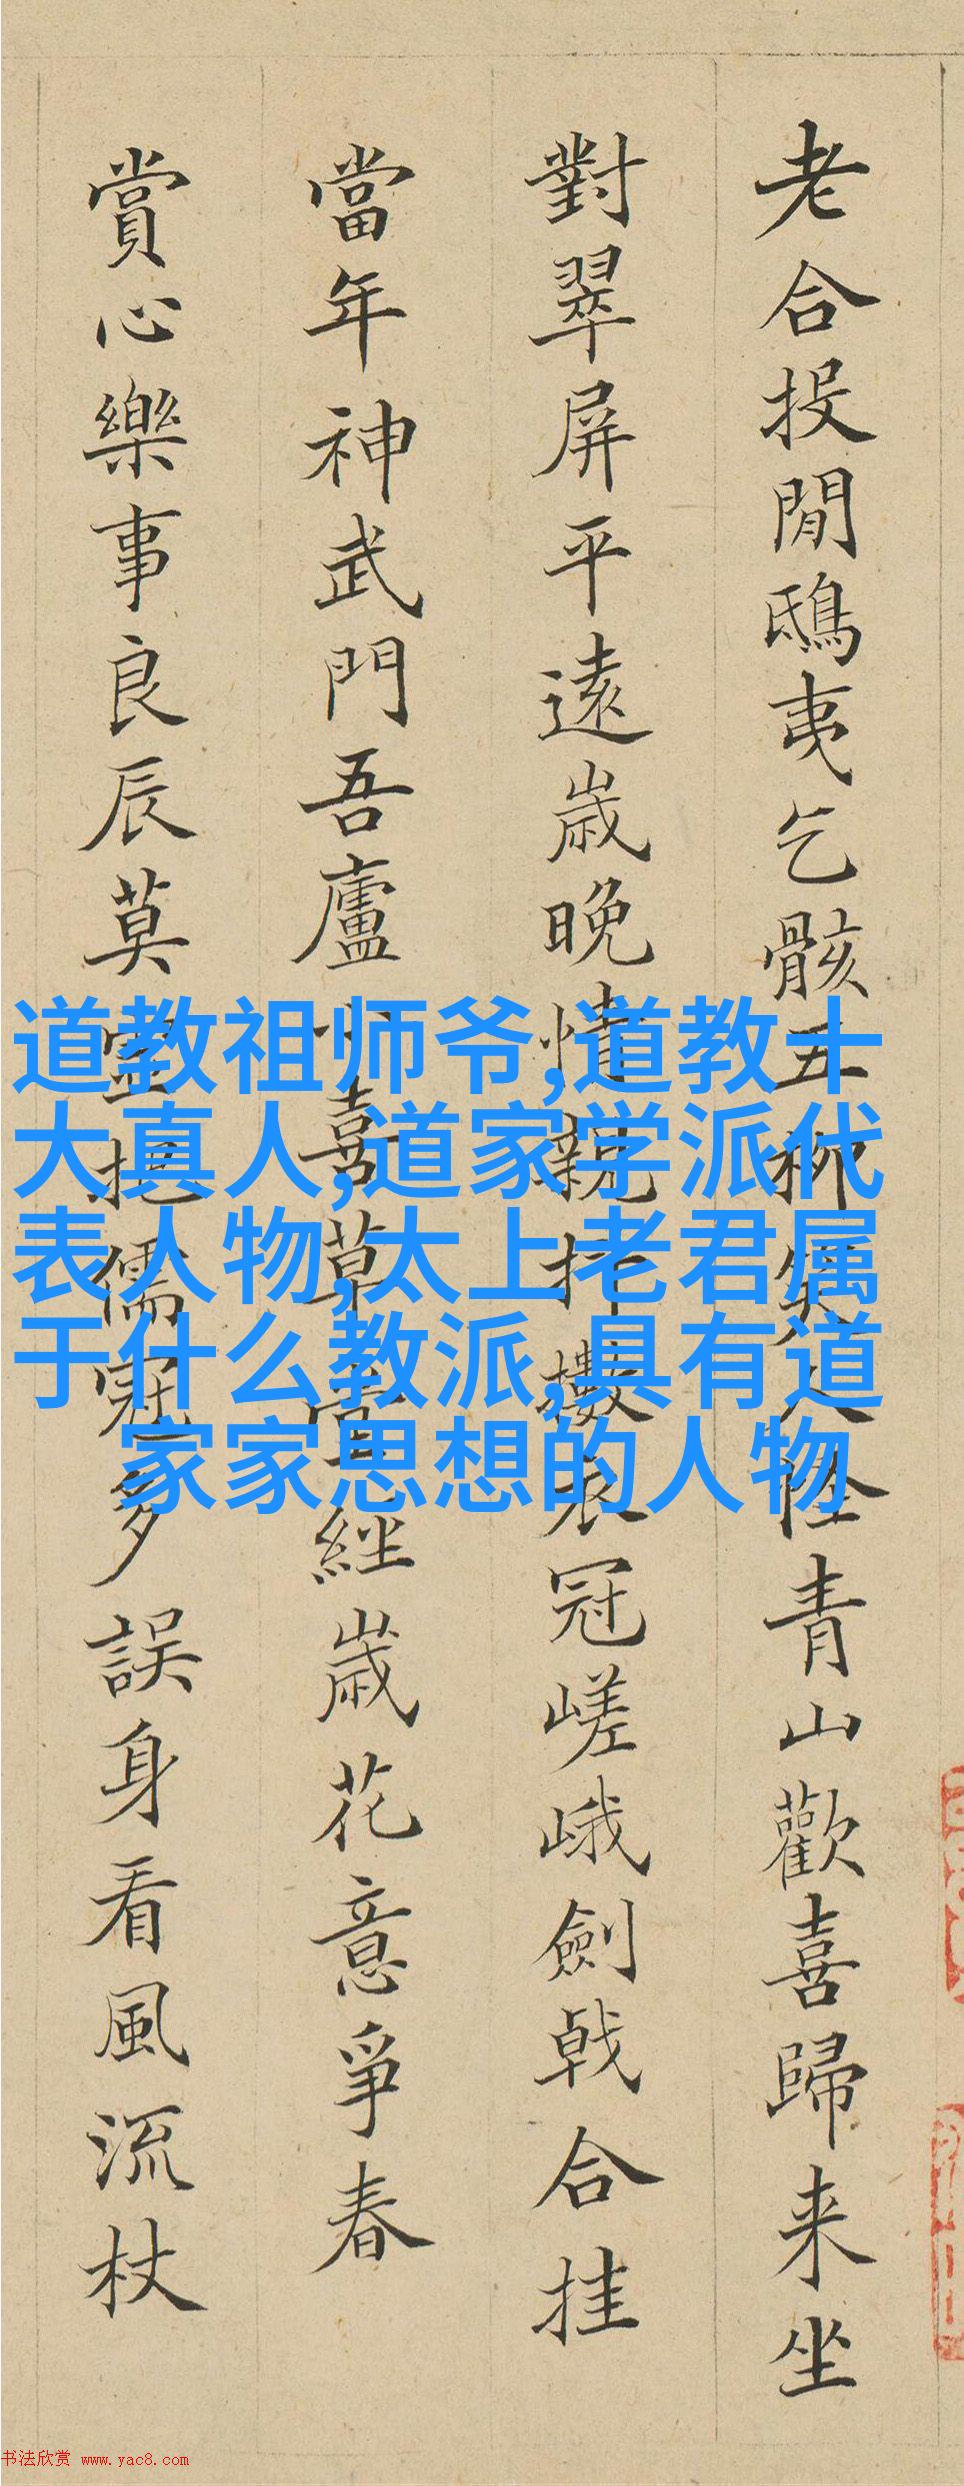 老合投閒鴟夷乞骸五柳笑人怪青山歡喜歸来坐
對翠屏平遠歲晚情親抖擻衣冠嵯峨劍戟合挂
當年神武門吾廬喜草堂經歲花意爭春
賞心樂事良辰莫靈把儒冠多誤身看風流杖
道教祖师爷,道教十
大真人,道家学派代
表人物,太上老君属
于什么教派,具有道
家家思想的人物
书法欣赏 www.yac8.com